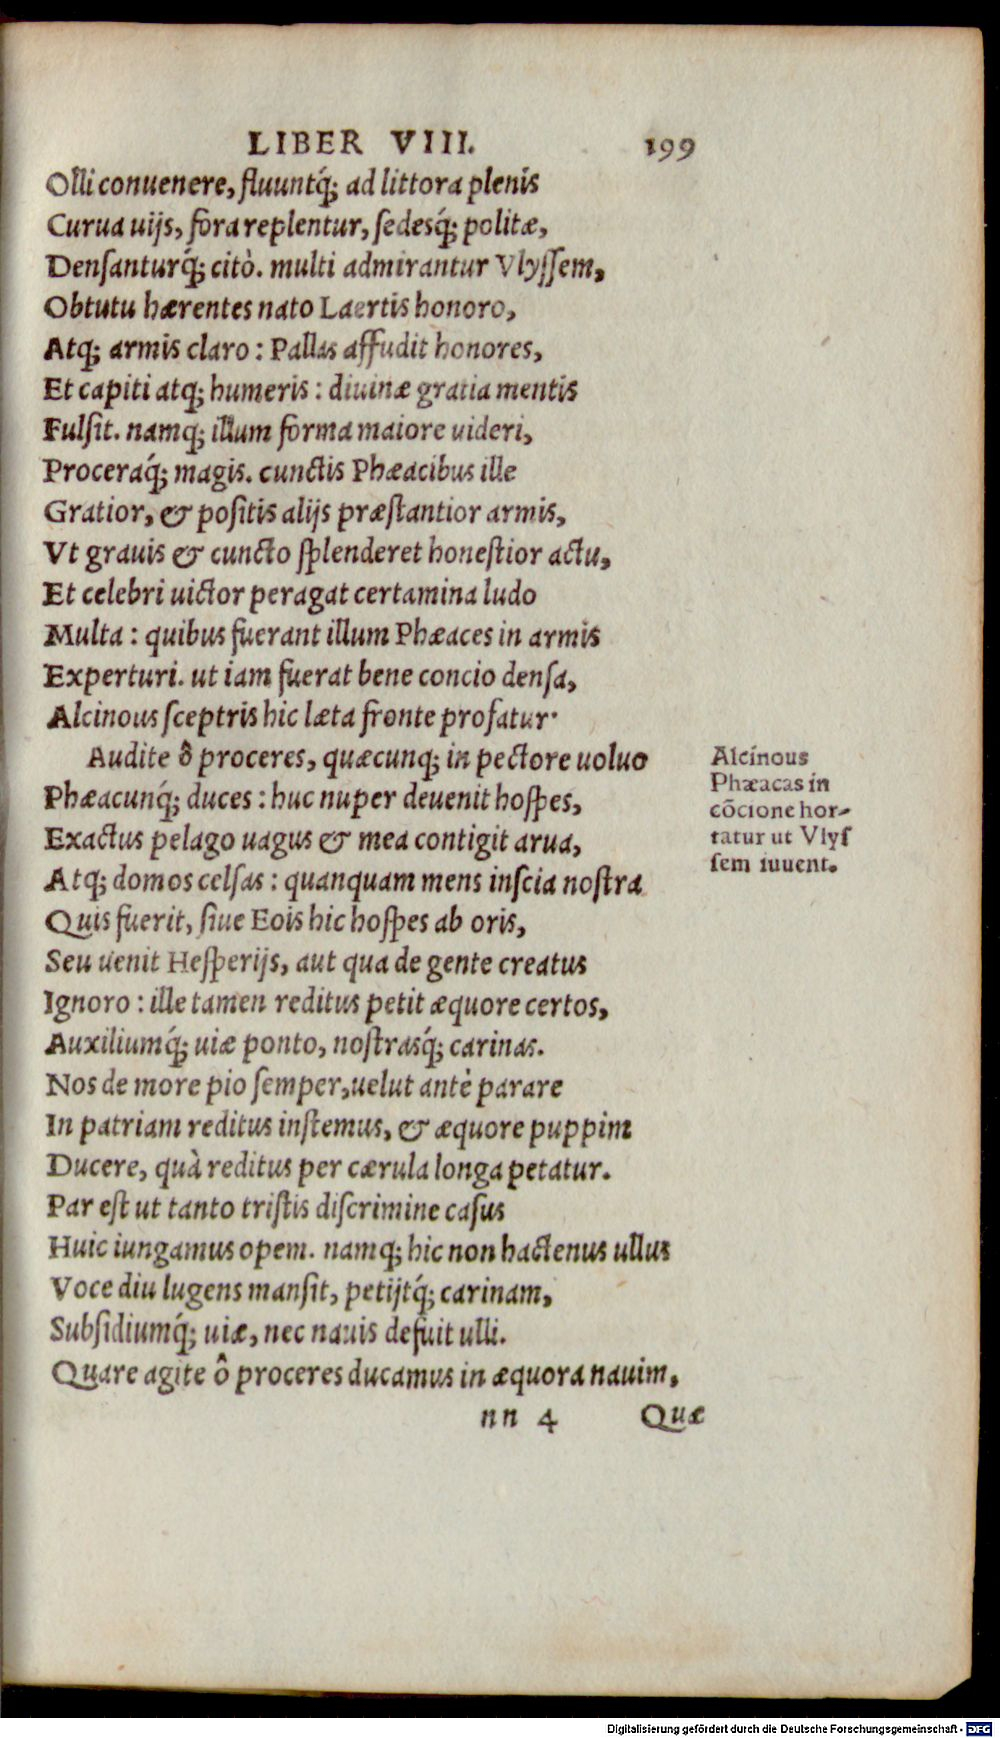 LIBER VIII. 199
Olli conuenere, fluuntq́; ad littora plenis
Curua uijs, fora replentur, sedesq́; politæ,
Densanturq́; citò. multi admirantur Vlyssem,
Obtutu hærentes nato Laertis honoro,
Atq; armis claro : Pallas affudit honores,
Et capiti atq; humeris : diuinæ gratia mentis
Fulsit. namq; illum forma maiore uideri,
Proceraq́; magis. cunctis Phæacibus ille
Gratior, & positis alijs præstantior armis,
Vt grauis & cuncto splenderet honestior actu,
Et celebri uictor peragat certamina ludo
Multa : quibus fuerant illum Phæaces in armis
Experturi. ut iam fuerat bene concio densa,
Alcinous sceptris hic læta fronte profatur.
Audite ô proceres, quæcunq; in pectore uoluo
Phæacunq́; duces : huc nuper deuenit hospes,
Exactus pelago uagus & mea contigit arua,
Atq; domos celsas : quanquam mens inscia nostra
Quis fuerit, siue Eois hic hospes ab oris,
Seu uenit Hesperijs, aut qua de gente creatus
Ignoro : ille tamen reditus petit æquore certos,
Auxiliumq́; uiæ ponto, nostrasq́; carinas.
Nos de more pio semper, uelut antè parare
In patriam reditus instemus, & æquore puppim
Ducere, quà reditus per cærula longa petatur.
Par est ut tanto tristis discrimine casus
Huic iungamus opem. namq; hic non hactenus ullus
Voce diu lugens mansit, petijtq́; carinam,
Subsidiumq́; uiæ, nec nauis defuit ulli.
Quare agite ô proceres ducamus in æquora nauim,
nn 4 Quæ
Alcinous
Phæacas in
cōcione hor-
tatur ut Vlys
sem iuuent.
Digitalisierung gefördert durch die Deutsche Forschungsgemeinschaft - DFG